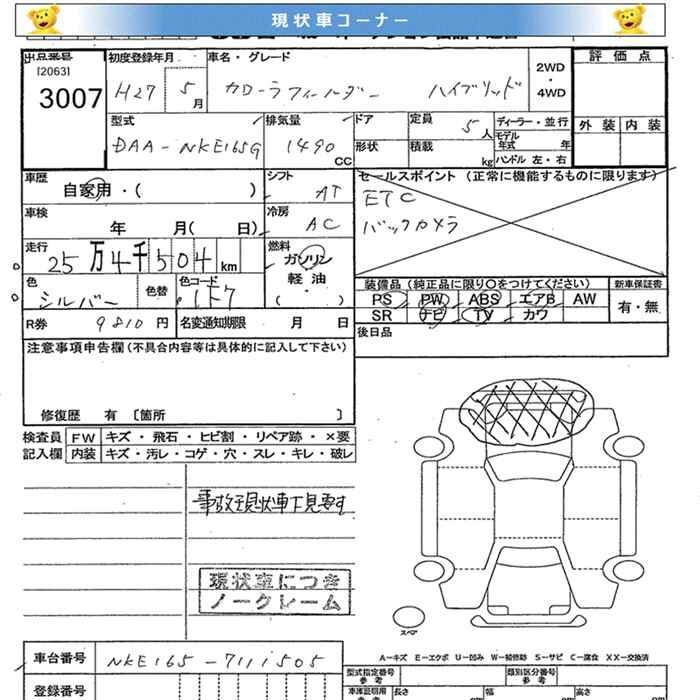 現状車コーナー
出品番号
[2063]
3007
初度登録年月
H27 5月
車名・グレード
カローラフィールダー ハイブリッド
2WD
・
4WD
評価点
外装 内装
型式
DAA-NKE165G
排気量
1490
CC
ドア
形状
定員
5人
積載
kg
ディーラー・並行
モデル
年式 年
ハンドル 左・右
車歴
自家用・( )
シフト
AT
セールスポイント (正常に機能するものに限ります)
ETC
バックカメラ
車検
年 月( 日)
冷房
AC
走行
25万4千504km
燃料
ガソリン
軽油
( )
色
シルバー
色替
色コード
1F7
装備品(純正品に限り○をつけてください)
新車保証書
PS PW ABS エアB AW
SR ナビ TV カワ
有・無
R券 9810円
名変通知期限 月 日
後日品
注意事項申告欄(不具合内容等は具体的に記入して下さい)
修復歴 有 〔箇所 〕
検査員
記入欄
FW キズ・飛石・ヒビ割・リペア跡・×要
内装 キズ・汚レ・コゲ・穴・スレ・キレ・破レ
事故現状車下見要す
現状車につき
ノークレーム
スペア
A-キズ E-エクボ U-凹み W-補修跡 S-サビ C-腐食 XX-交換済
車台番号 NKE165-7111505
型式指定番号
参考
類別区分番号
参考
登録番号
車庫証明用
参考
長さ
cm
幅
cm
高さ
cm